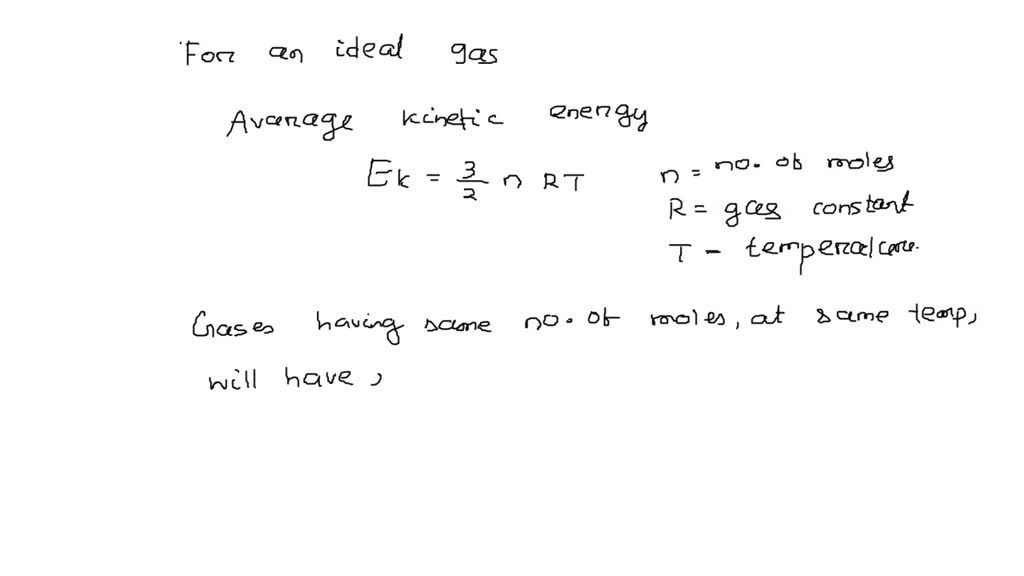 For an ideal gas
Avarage kinetic energy
Ek = 3/2 n RT
n = no. of moles
R = gas constant
T - temperature.
Gases having same no. of moles, at same temp,
will have,